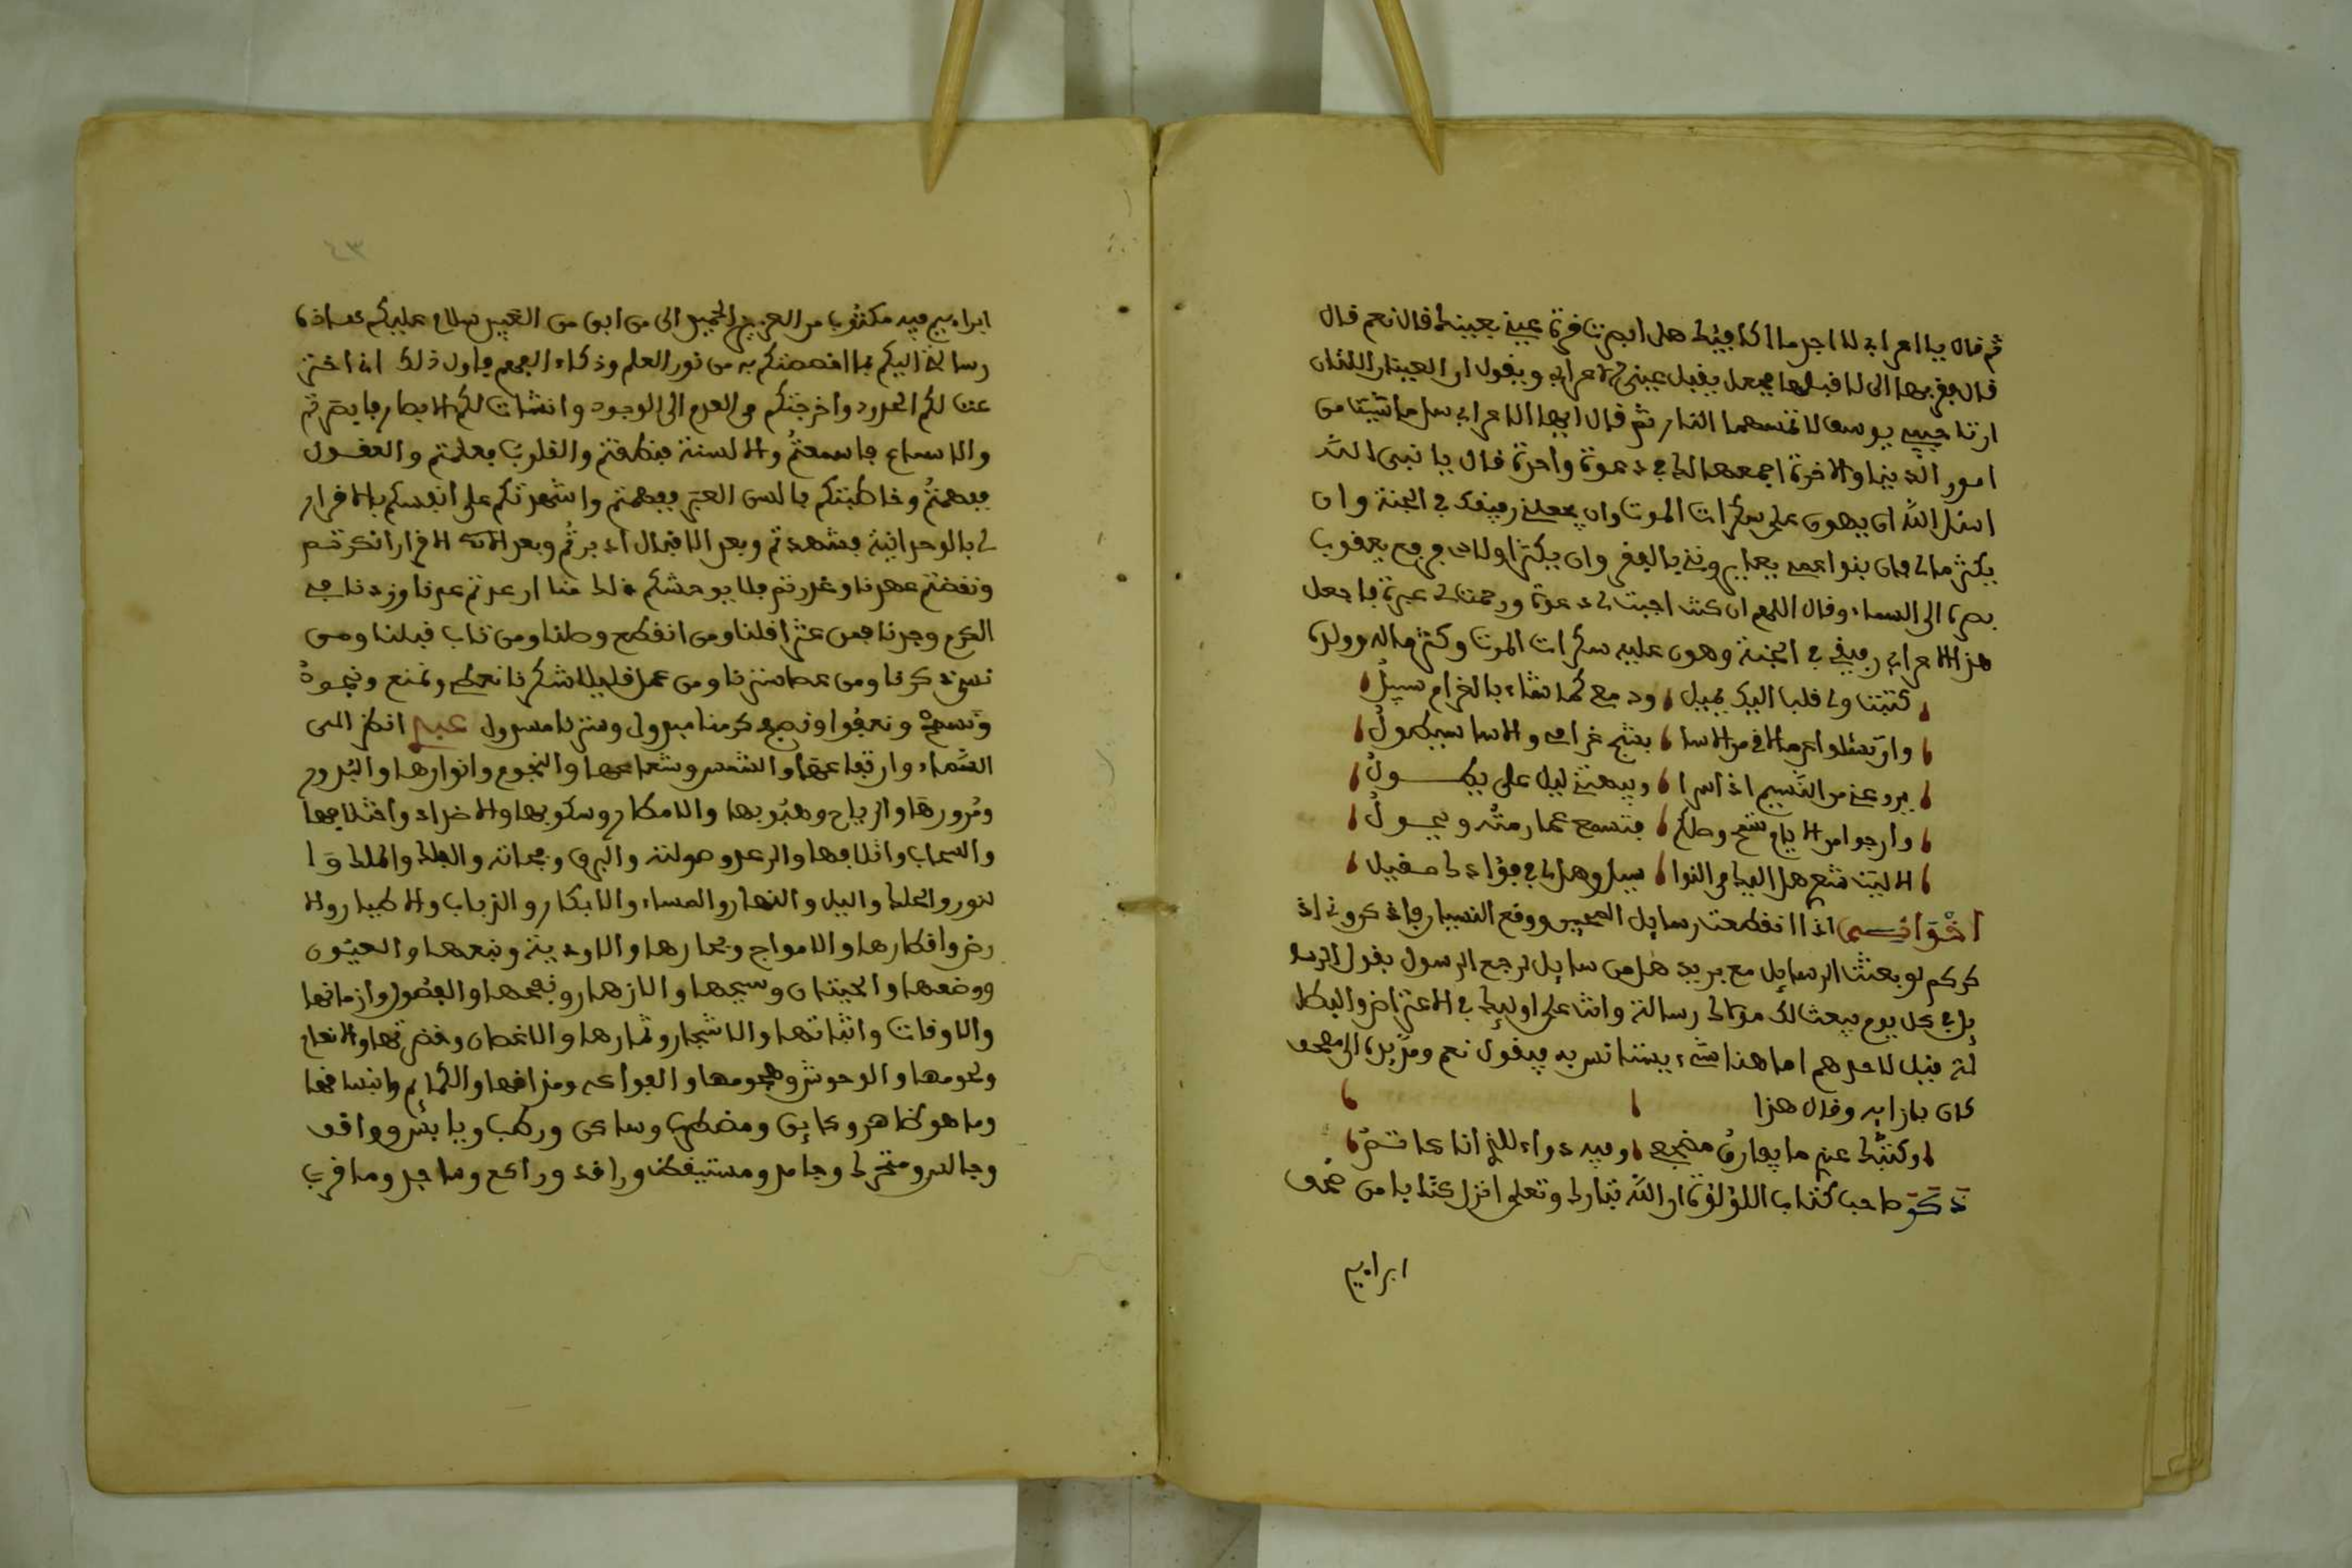 ثم قال يا اعرابي لا اجد ما اكافيك هل ابصرت قرة عيني بعينيك قال نعم قال
قال بقربها الى لاقبلها فجعل يقبل عيني الاعرابي ويقول ان العينان اللذان
يوسف لا تمسهما النار ثم قال ايها الاعرابي سل ما شيت من
امور الدنيا والاخرة اجمعها لك في دعوة واحدة قال يا نبي الله
اسئل الله ان يهون علي سكرات الموت وان يجعلني رفيقك في الجنة وان
يكثر مالي فان بنوا عمي يعايرونني بالفقر وان يكثر اولادي فرفع يعقوب
بصره الى السماء وقال اللهم ان كنت اجبت لي دعوة ورحمت لي عبرة فاجعل
هذا الاعرابي رفيقي في الجنة وهون عليه سكرات الموت وكثر ماله وولده
كتبت ولي قلب اليك يميل ودمع كما شاء بالغرام سيل
وان تسئلوا عما الاقي من الاسا بشرح غرامي والاسا سيطول
يروعني من النسيم اذا سرا ويبهتني ليل علي يطول
وارجوا من الايام وصلكم فتسمع عما رمته ويحول
الا ليت شعري هل اليك من النوا سبيل وهل لي في فؤادك مقيل
اخواني اذا انقطعت رسايل المحبين ووقع النسيان فاذكروني اذ
كركم لو بعثت الرسايل مع بريد هل من سايل لرجع الرسول بقول الرسا
يل في كل يوم يبعث لك مولاك رسالة وانت على اوليك في الاعتراض والبطا
لة قيل لاحدهم اما هنا شيء يستانس به فيقول نعم ومد يده الى مصحف
كان بازايه وقال هذا
وكتبك عندي ما يفارق مضجعي وفيه دواء للذي انا كاتم
ذكر صاحب كتاب اللؤلؤيات ان الله تبارك وتعلى انزل كتابا من صحف
ابراهيم
٤٣
ابراهيم فيه مكتوب من العزيز الحميد الى من ابق من العبيد سلام عليكم هذه
رسالة اليكم بما اخصصتكم به من نور العلم وذكاء الفهم فاول ذلك اني اختر
عت لكم الحدود واخرجتكم من العدم الى الوجود وانشات لكم الابصار فابصرتم
والاسماع فاسمعتم والالسنة فنطقتم والقلوب فعلمتم والعقول
ففهمتم وخاطبتكم بالسن العبر ففهمتم واشهدتكم على انفسكم بالاقرار
لي بالوحدانية فشهدتم وبعد الاقبال ادبرتم وبعد الاقرار انكرتم
ونقضتم عهدنا وغدرتم فلا يوحشكم ذلك منا ان عدتم عدنا وزدنا في
الكرم وجدنا فمن عثر اقلنا ومن انقطع وصلنا ومن تاب قبلنا ومن
نسي ذكرنا ومن عصا سترنا ومن عمل قليلا شكرنا نعطي ونمنع ونجود
ونسمح ونعفوا ونصفح كرمنا مبذول وسترنا مسبول عبدي انظر الى
السماء وارتفاعها والشمس وشعاعها والنجوم وانوارها والبروج
ومرورها والرياح وهبوبها والامطار وسكوبها والاختلافها
والسحاب وائتلافها والرعد وصولته والبرق والفلك والملك وا
لنور والحلك والليل والنهار والمساء والابكار والذباب والاطيار والا
رض واقطارها والامواج وبحارها والاودية ونبعها والعيون
ووضعها والحيتان وسبحها والازهار ونفحها والفصول وازمانها
والاوقات واثباتها والاشجار وثمارها والاغصان وخضرتها والانعام
ولحومها والوحوش وهجومها والفواكه ومذاقها والكمايم وانبساقها
وما هو ظاهر وكاين ومضطرب وساكن ورطب ويابس وواقف
وجالس ومتحرك وجامد ومستيقظ وراقد وراكع وساجد وما قرب